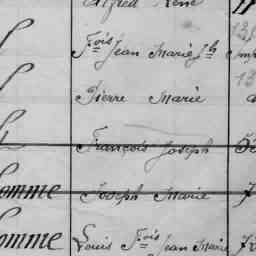 Alfred René
Fois Jean Marie Jh
Pierre Marie
François Joseph
omme Joseph Marie
omme Louis Fois Jean Marie